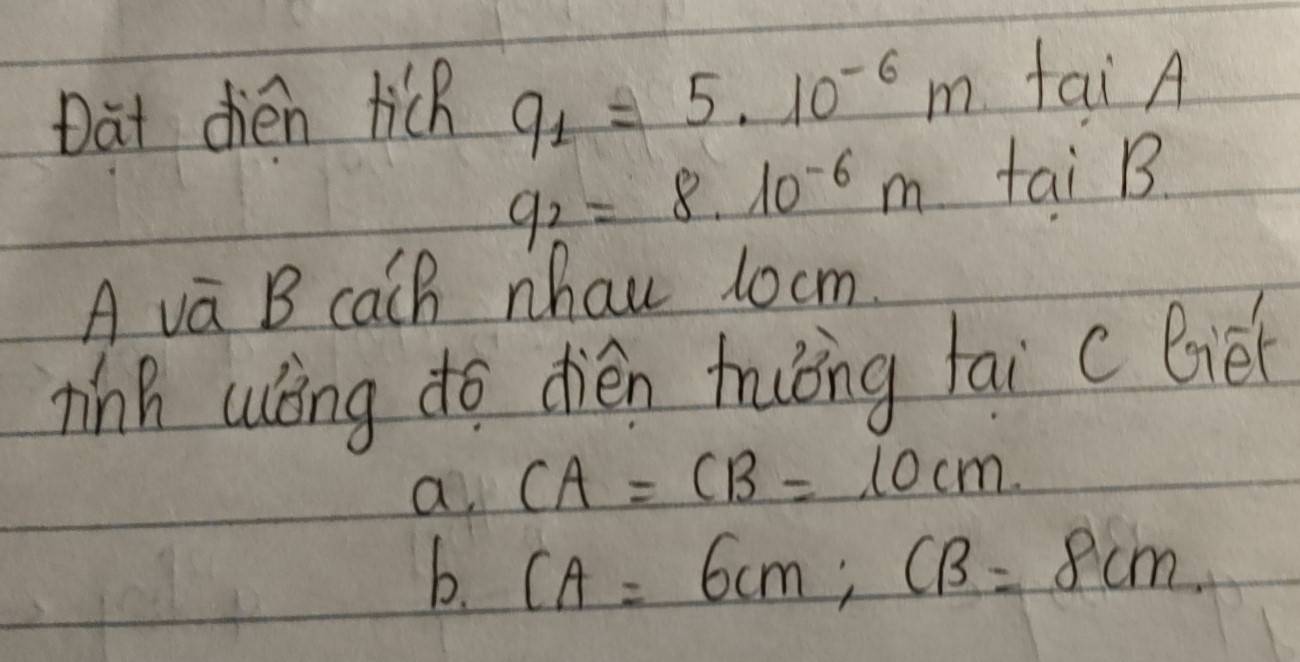 Đặt điện tích q₁ = 5. 10⁻⁶ m tại A
q₂ = 8. 10⁻⁶ m tại B.
A và B cách nhau 10cm.
Tính cường độ điện trường tại C biết
a, CA = CB = 10cm.
b. CA = 6cm; CB = 8cm.